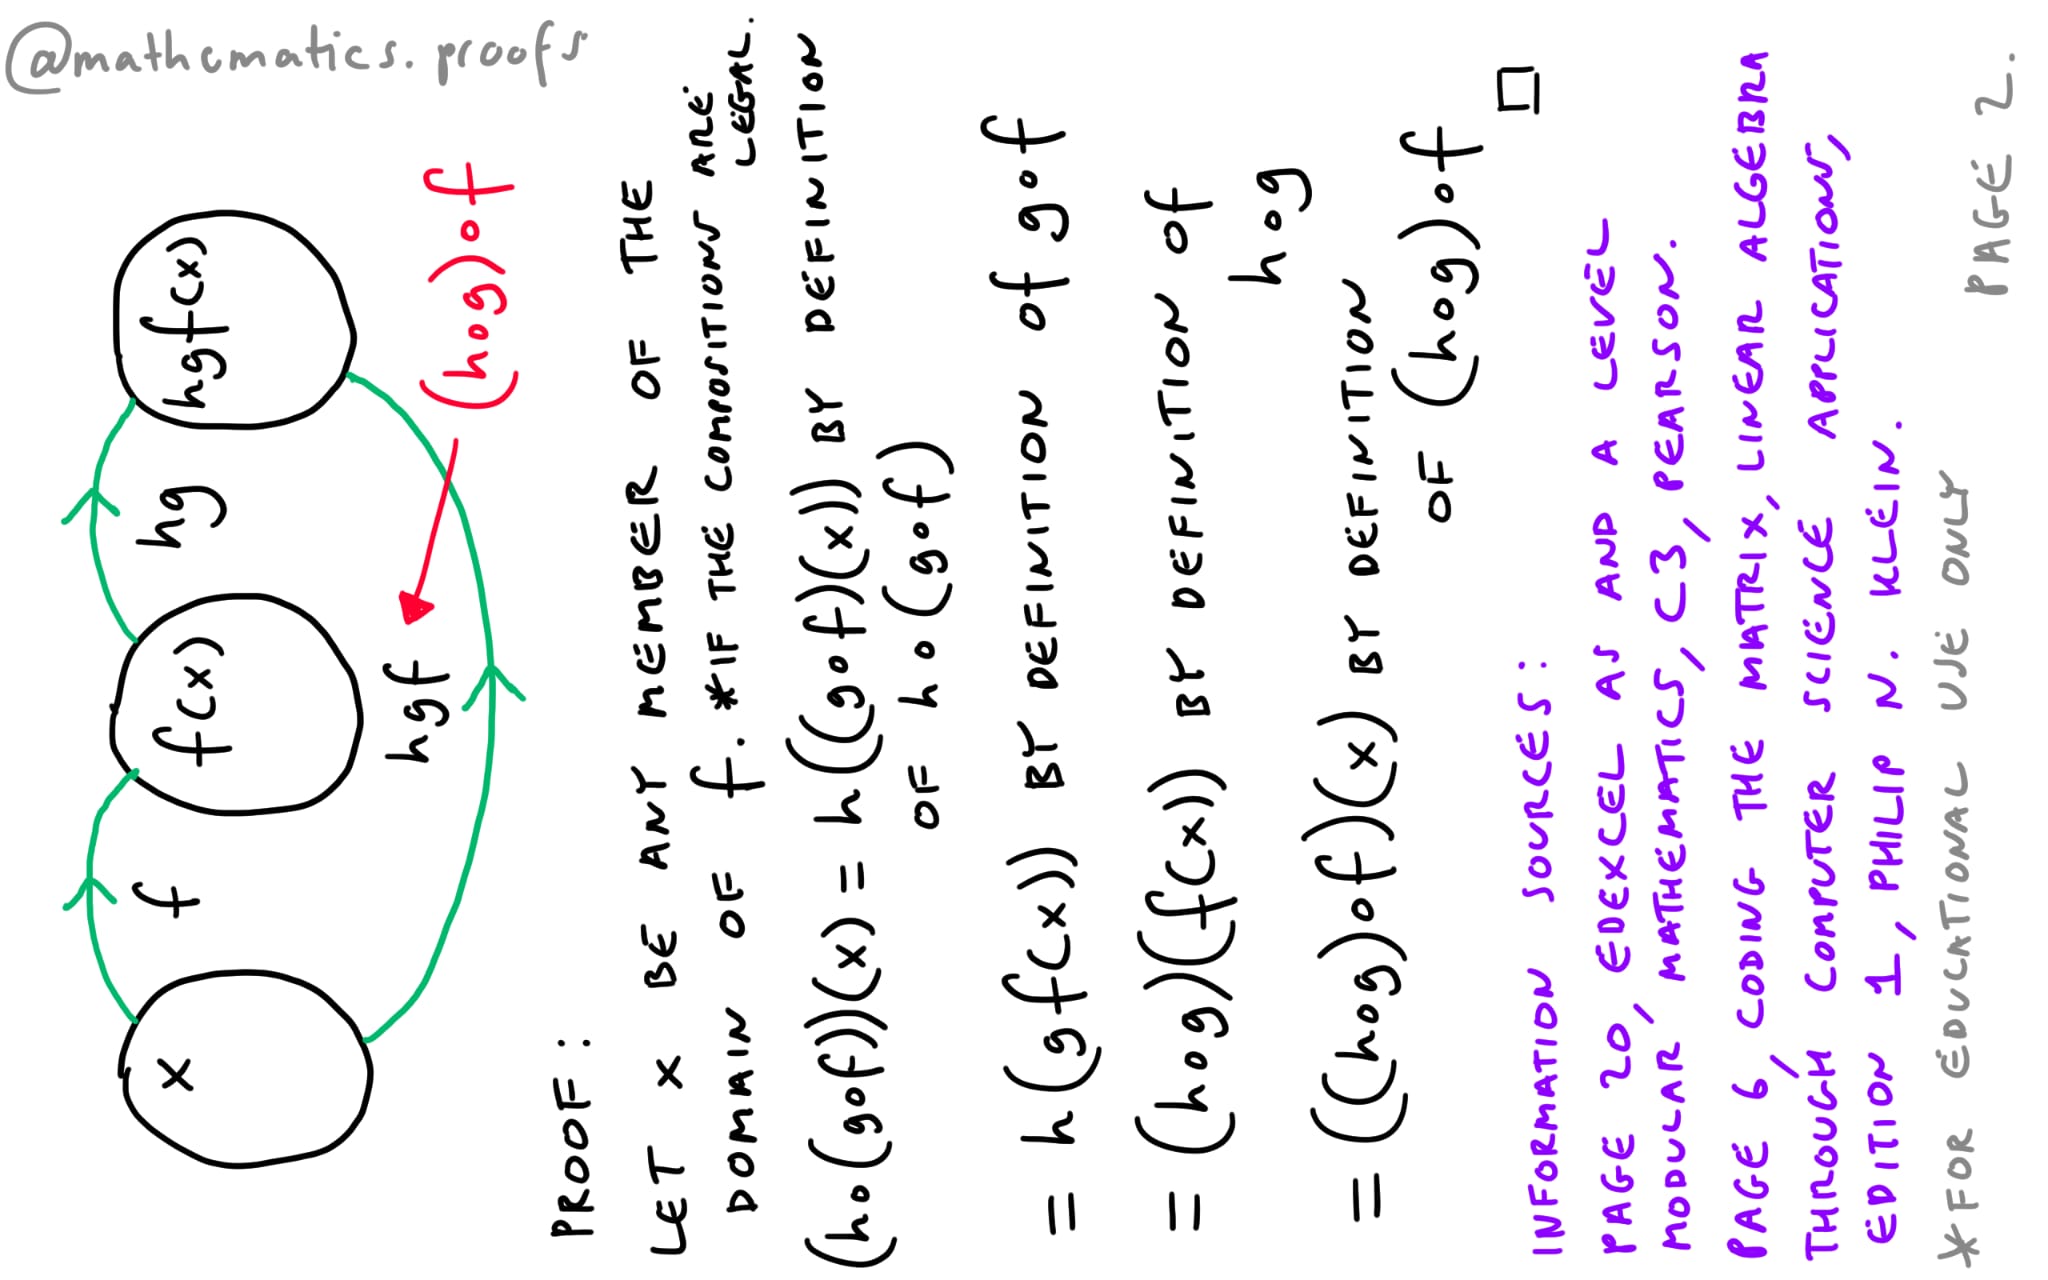 @mathematics.proofs
x f f(x) hg hgf(x)
hgf
(h∘g)∘f
PROOF:
LET x BE ANY MEMBER OF THE
DOMAIN OF f. *IF THE COMPOSITIONS ARE
LEGAL.
(h∘(g∘f))(x) = h((g∘f)(x)) BY DEFINITION
OF h∘(g∘f)
= h(gf(x)) BY DEFINITION of g∘f
= (h∘g)(f(x)) BY DEFINITION of
h∘g
= ((h∘g)∘f)(x) BY DEFINITION
OF (h∘g)∘f
□
INFORMATION SOURCES:
PAGE 20, EDEXCEL AS AND A LEVEL
MODULAR MATHEMATICS, C3, PEARSON.
PAGE 6, CODING THE MATRIX, LINEAR ALGEBRA
THROUGH COMPUTER SCIENCE APPLICATIONS,
EDITION 1, PHILIP N. KLEIN.
*FOR EDUCATIONAL USE ONLY
PAGE 2.